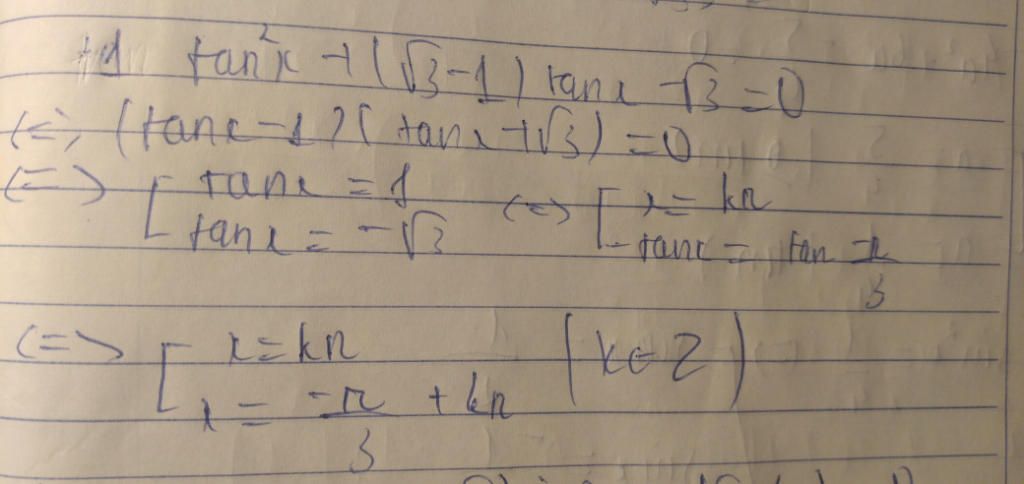 +) tan²x + (√3-1) tanx - √3 = 0
<=> (tanx - 1)(tanx + √3) = 0
<=> [ tanx = 1 <=> [ x = kπ
tanx = -√3 tanx = tan -π/3
<=> [ x = kπ (k ∈ Z)
x = -π/3 + kπ